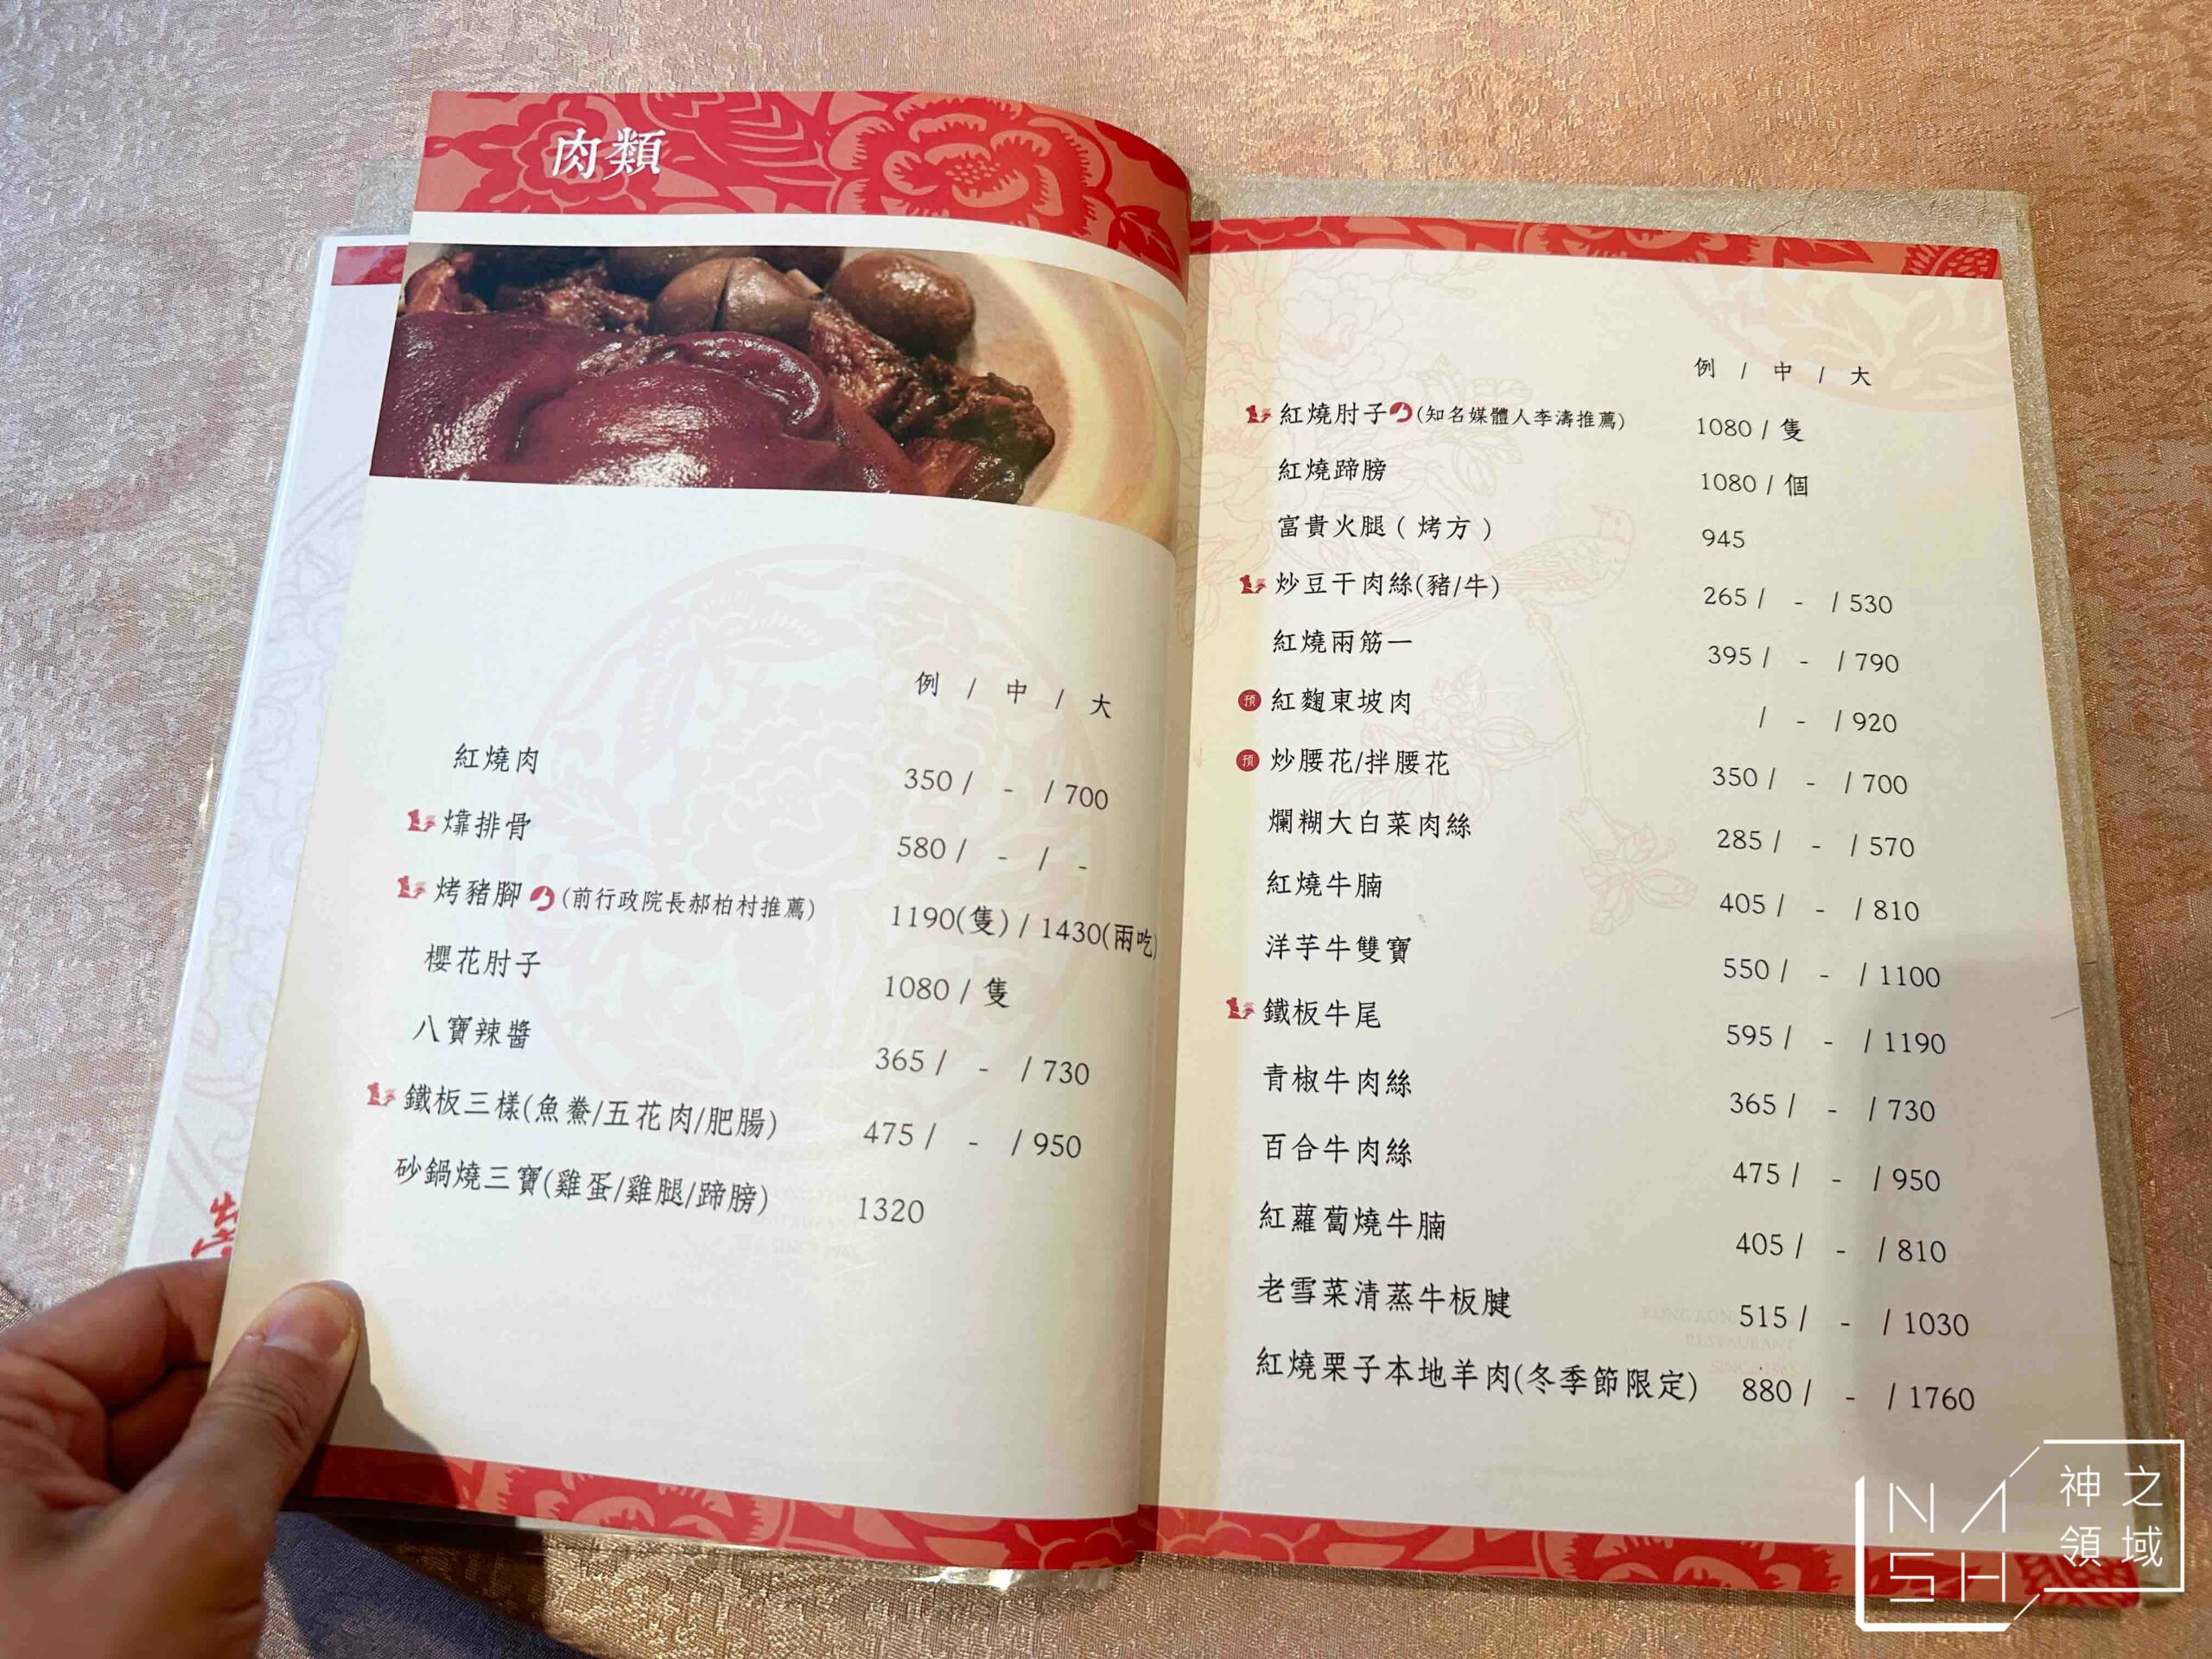 肉類
例 / 中 / 大
紅燒肉 350 / - / 700
㸆排骨 580 / - / -
烤豬腳(前行政院長郝柏村推薦) 1190(隻) / 1430(兩吃)
櫻花肘子 1080 / 隻
八寶辣醬 365 / - / 730
鐵板三樣(魚鯗/五花肉/肥腸) 475 / - / 950
砂鍋燒三寶(雞蛋/雞腿/蹄膀) 1320
例 / 中 / 大
紅燒肘子(知名媒體人李濤推薦) 1080 / 隻
紅燒蹄膀 1080 / 個
富貴火腿(烤方) 945
炒豆干肉絲(豬/牛) 265 / - / 530
紅燒兩筋一 395 / - / 790
預 紅麴東坡肉 / - / 920
預 炒腰花/拌腰花 350 / - / 700
爛糊大白菜肉絲 285 / - / 570
紅燒牛腩 405 / - / 810
洋芋牛雙寶 550 / - / 1100
鐵板牛尾 595 / - / 1190
青椒牛肉絲 365 / - / 730
百合牛肉絲 475 / - / 950
紅蘿蔔燒牛腩 405 / - / 810
老雪菜清蒸牛板腱 515 / - / 1030
紅燒栗子本地羊肉(冬季節限定) 880 / - / 1760
RESTAURANT
NASH
神之
領域